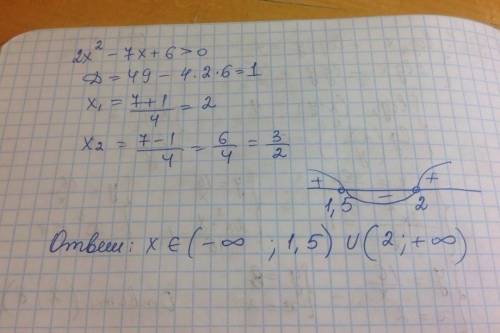 2x² - 7x + 6 > 0
D = 49 - 4·2·6 = 1
x₁ = (7+1)/4 = 2
x₂ = (7-1)/4 = 6/4 = 3/2
+ - +
1,5 2
Ответ: x ∈ (-∞ ; 1,5) ∪ (2; +∞)